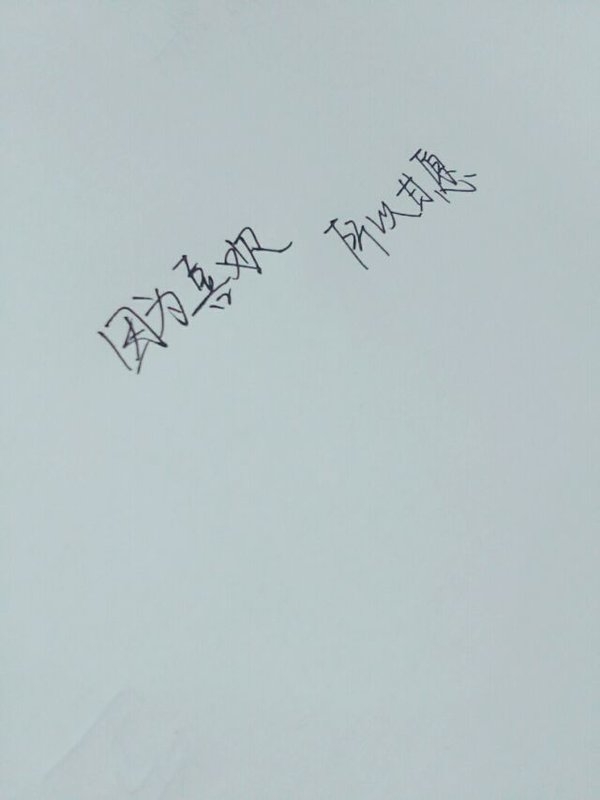 因为喜欢 所以甘愿